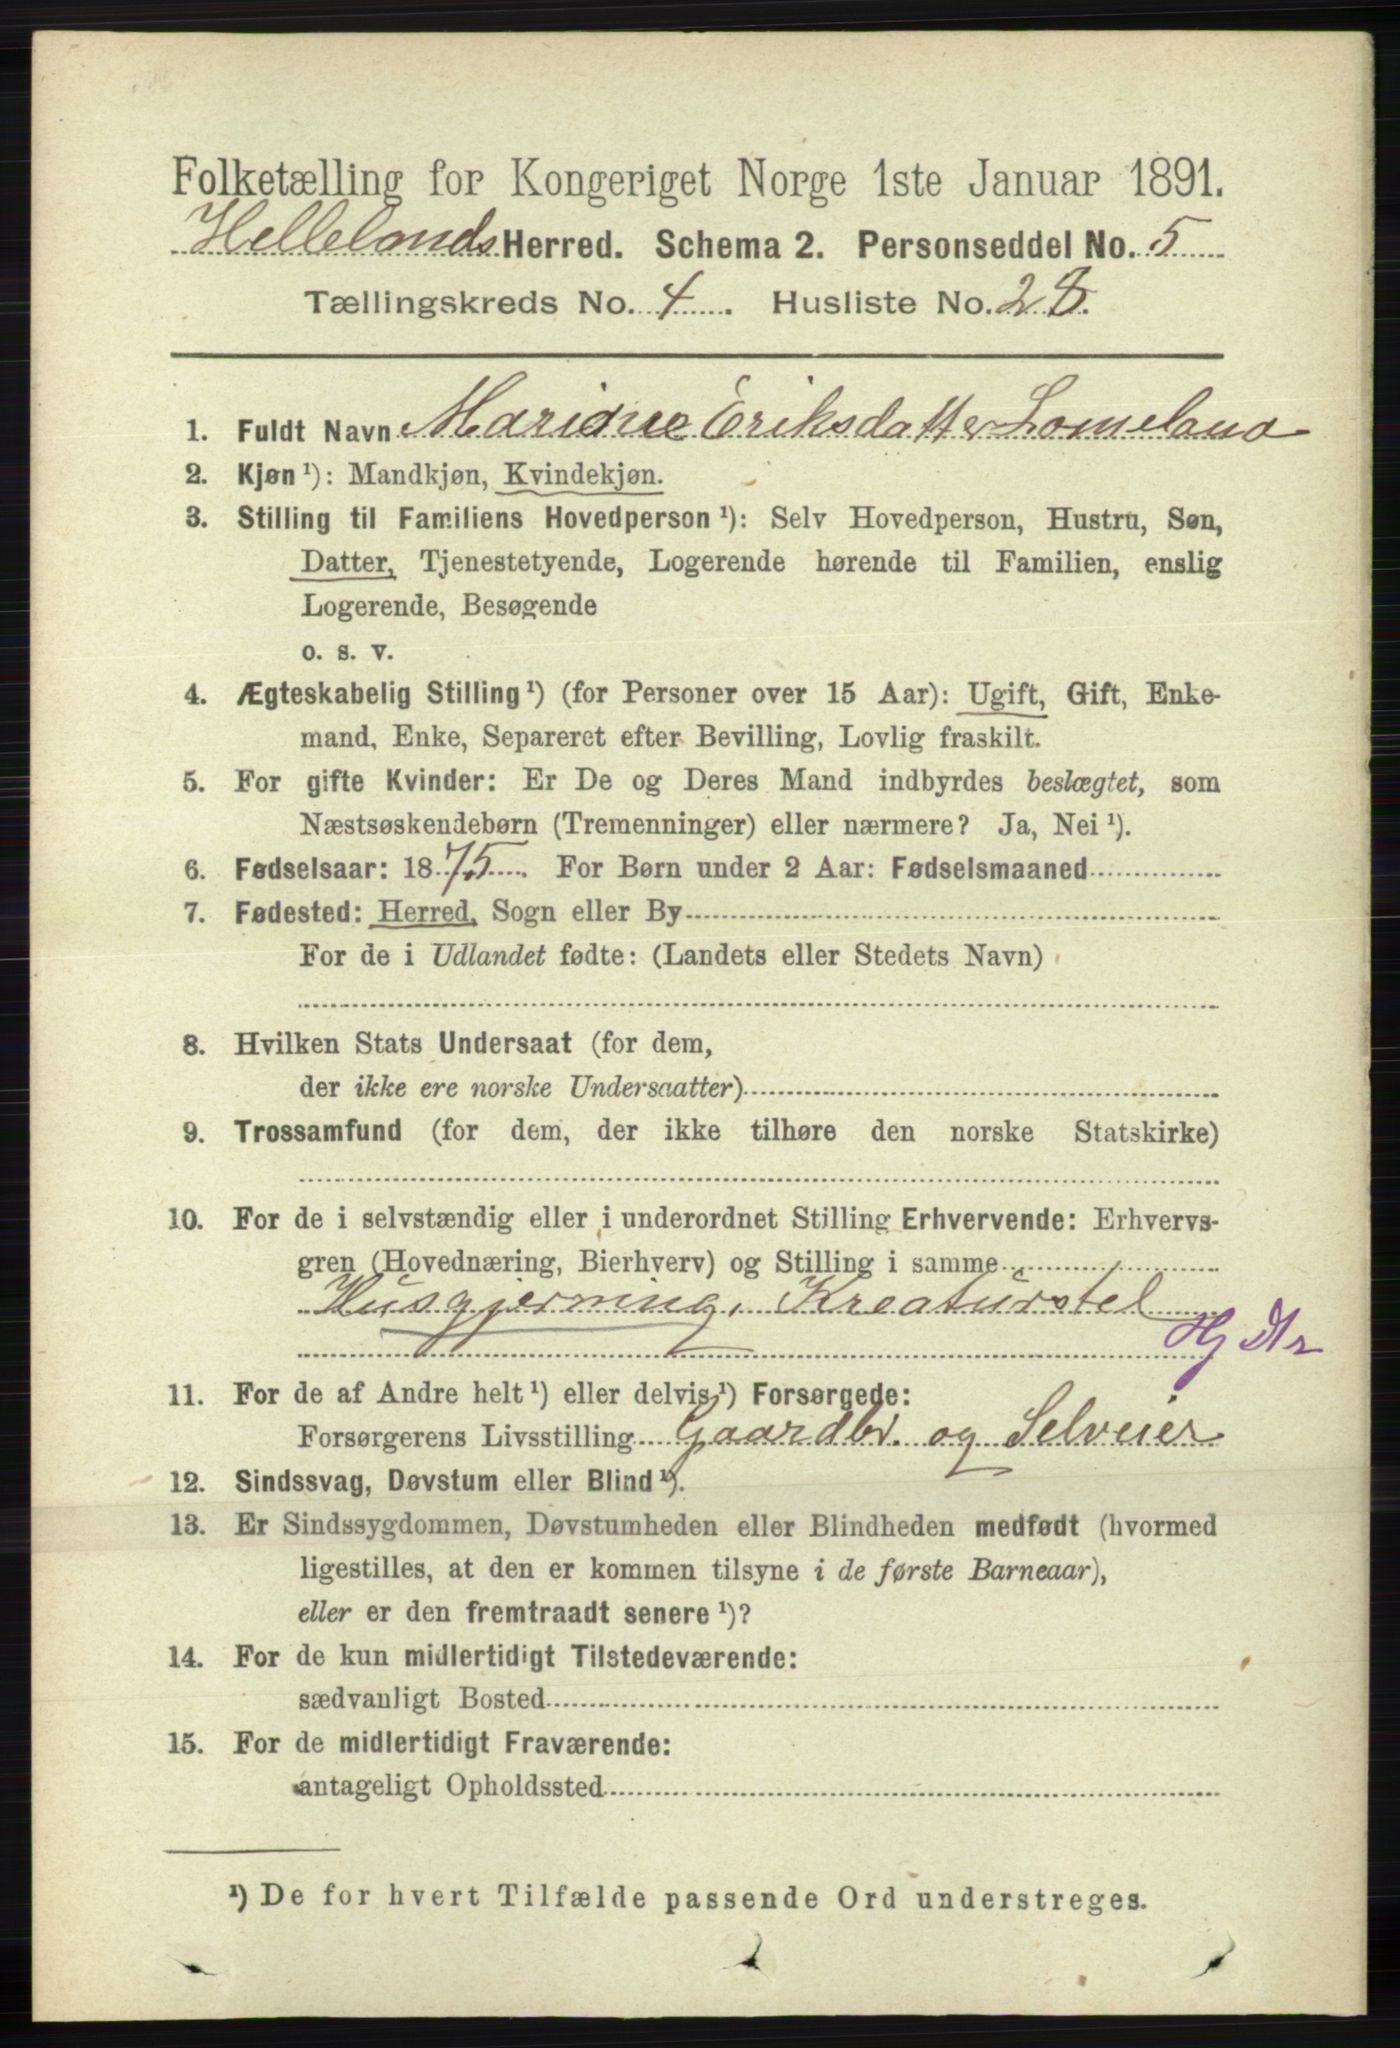 Folketælling for Kongeriget Norge 1ste Januar 1891.
Hellelands Herred. Schema 2. Personseddel No. 5
Tællingskreds No. 4. Husliste No. 28.
1. Fuldt Navn Mariane Eriksdatter Lomeland
2. Kjøn¹): Mandkjøn, Kvindekjøn.
3. Stilling til Familiens Hovedperson¹): Selv Hovedperson, Hustru, Søn,
Datter, Tjenestetyende, Logerende hørende til Familien, enslig
Logerende, Besøgende
o. s. v.
4. Ægteskabelig Stilling¹) (for Personer over 15 Aar): Ugift, Gift, Enke-
mand, Enke, Separeret efter Bevilling, Lovlig fraskilt.
5. For gifte Kvinder: Er De og Deres Mand indbyrdes beslægtet, som
Næstsøskendebørn (Tremenninger) eller nærmere? Ja, Nei¹).
6. Fødselsaar: 1875. For Børn under 2 Aar: Fødselsmaaned
7. Fødested: Herred, Sogn eller By
For de i Udlandet fødte: (Landets eller Stedets Navn)
8. Hvilken Stats Undersaat (for dem,
der ikke ere norske Undersaatter)
9. Trossamfund (for dem, der ikke tilhøre den norske Statskirke)
10. For de i selvstændig eller i underordnet Stilling Erhvervende: Erhvervs-
gren (Hovednæring, Bierhverv) og Stilling i samme
Husgjerning, Kreaturstel
Hj Dtr
11. For de af Andre helt¹) eller delvis¹) Forsørgede:
Forsørgerens Livsstilling Gaardbr. og Selveier
12. Sindssvag, Døvstum eller Blind¹).
13. Er Sindssygdommen, Døvstumheden eller Blindheden medfødt (hvormed
ligestilles, at den er kommen tilsyne i de første Barneaar),
eller er den fremtraadt senere¹)?
14. For de kun midlertidigt Tilstedeværende:
sædvanligt Bosted
15. For de midlertidigt Fraværende:
antageligt Opholdssted
¹) De for hvert Tilfælde passende Ord understreges.